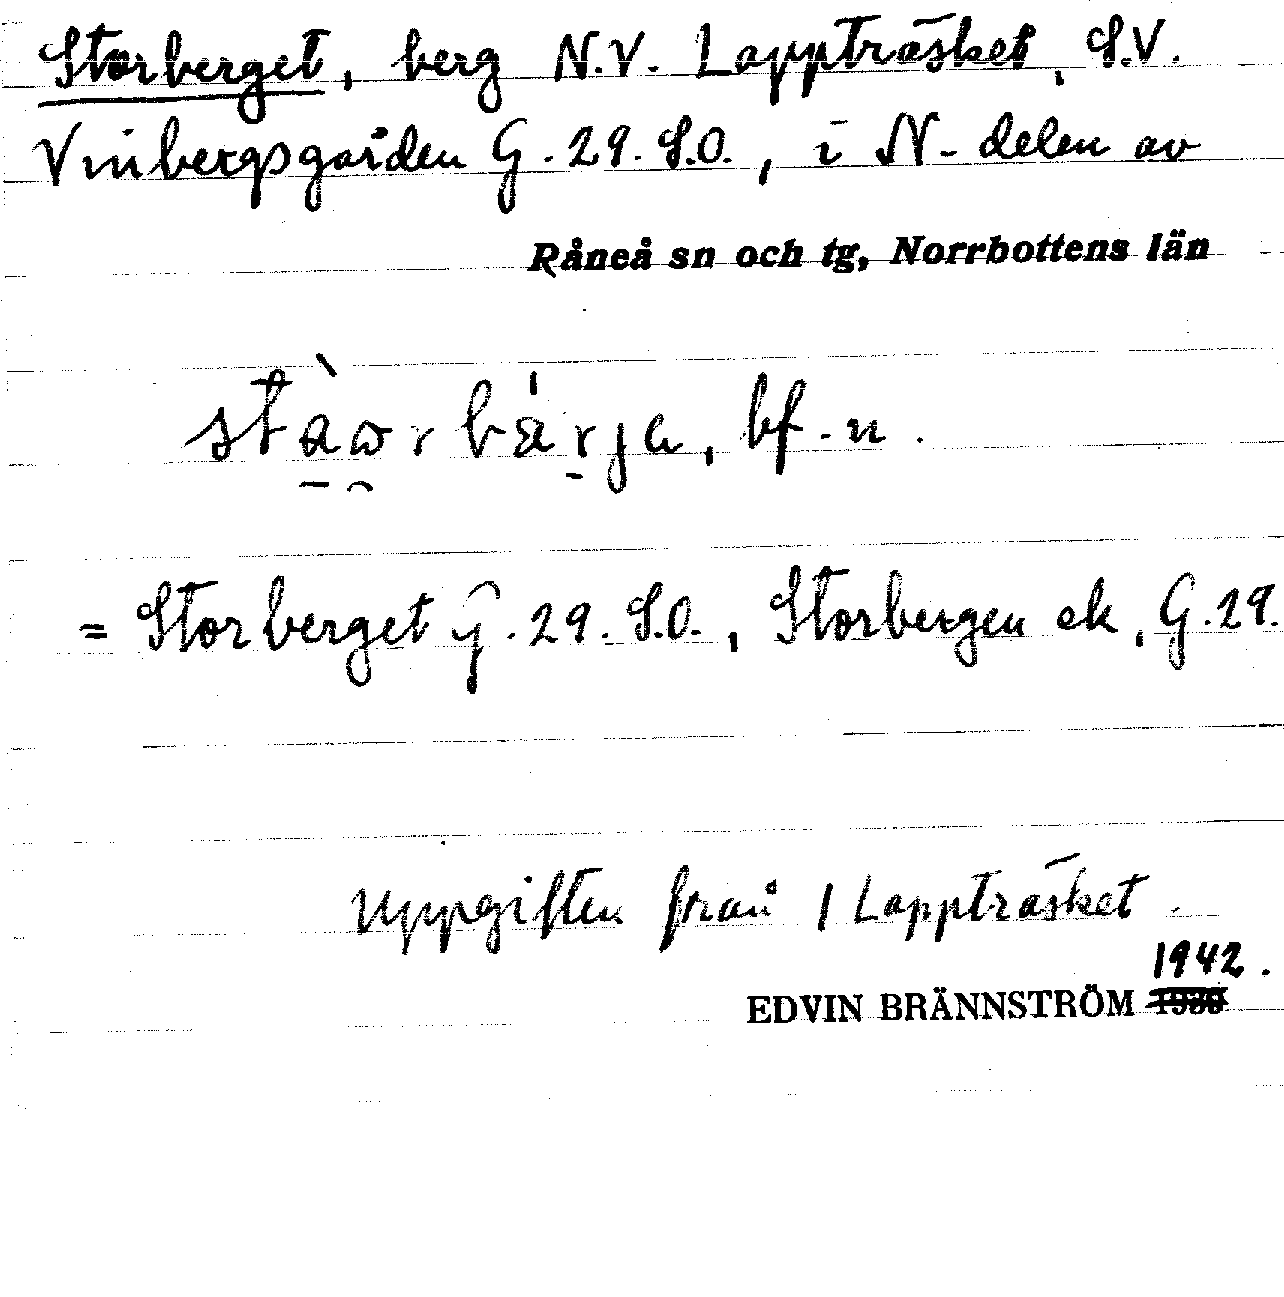 Storberget, berg N.V. Lappträsket, S.V.
Vinbergsgården G. 29. S.O., i N-delen av
Råneå sn och tg, Norrbottens län
stàωrbárja, bf. n.
= Storberget G. 29. S.O., Storbergen ek, G. 29.
Uppgiften från 1 Lappträsket
1942.
EDVIN BRÄNNSTRÖM 1930